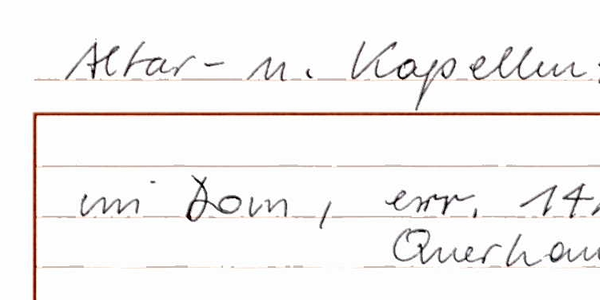 Altar- u. Kapellen:
im Dom, err. 14
Querhau